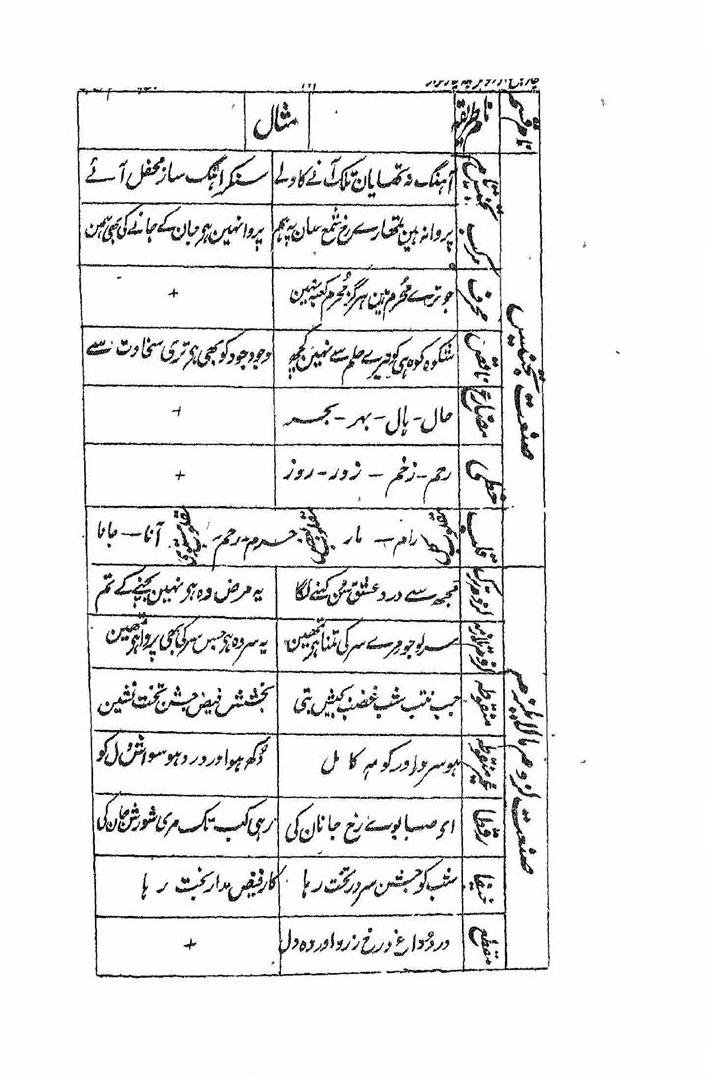 نام قسم نام طریقہ مثال
صنعت تجنیس
تجنیس تام آہنگ نہ تھا یان تلک آنے کا ولے سنکر آہنگ ساز محفل آئے
مرکب پروانہ ہین تمھارے رخ شمع سان پہ ہم پروا نہین ہو جان کے جانے کی بھی ہمین
محرف جو ترے محرم ہین ہرگز محرم کعبہ نہین +
ناقص شکوہ کوہ ہی کو تیرے حلم سے نہین کچھ وجود جود کو بھی ہو تری سخاوت سے
مضارع حال - ہال - بہر - بحر +
خطی رحم - زخم - زور - روز +
قلب رام - مار جرم - رحم - آنا - جانا
صنعت لزوم مالایلزم
مجھ سے درد عشق سن کہنے لگا یہ مرض وہ ہو نہین بچنے کے تم
سر لو جو مرے سر کی تمنا ہو تمھین یہ سر وہ ہو جس سر کی بھی پروا ہو تمھین
منقوطہ جب نتب شب غضب بخیش بتی بخشش فیض جشن تخت نشین
غیر منقوطہ ہو سرور اور کو مہ کامل دکھ ہوا ور درد ہو سواس دل کو
رقطا ای صبا بوے رخ جانان کی رہی کب تک مری شورش جان کی
خیفا شب کو جشن سرور تخت رہا کار فیض مدار بخت رہا
منقطع درد و داغ و رخ زرد اور وہ دل +